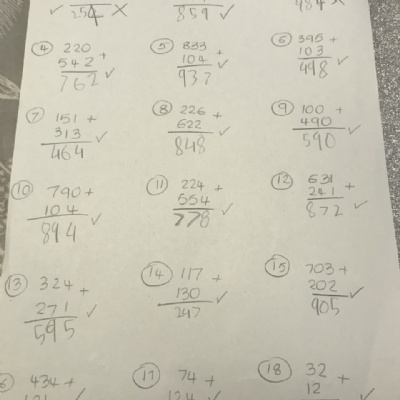 254 ✗ 859 ✓ 484 ✗
④ 220 ⑤ 833 + ⑥ 395 +
542 + 104 ✓ 103 ✓
762 ✓ 937 498
⑦ 151 + ⑧ 226 + ⑨ 100 +
313 ✓ 622 ✓ 490 ✓
464 848 590
⑩ 790 + ⑪ 224 + ⑫ 631 +
104 ✓ 554 ✓ 241 ✓
894 778 872
⑬ 324 + ⑭ 117 + ⑮ 703 +
271 ✓ 130 ✓ 202 ✓
595 247 905
434 + ⑰ 74 + ⑱ 32 +
12